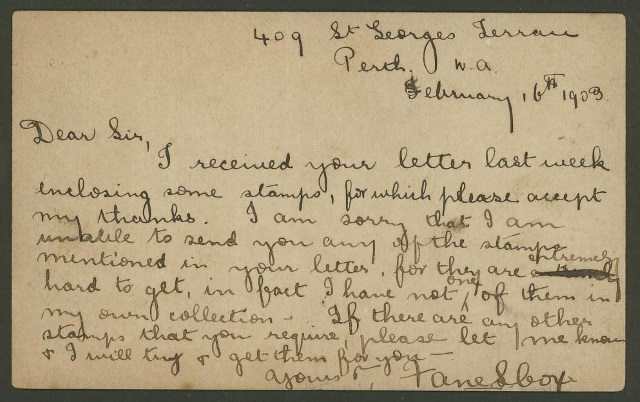 409 St Georges Terrace
Perth. W.A.
February, 16th 1903.
Dear Sir,
I received your letter last week
enclosing some stamps, for which please accept
my thanks. I am sorry that I am
unable to send you any of the stamps
mentioned in your letter, for they are extremely
hard to get, in fact I have not one of them in
my own collection - If there are any other
stamps that you require, please let me know
& I will try & get them for you —
Yours